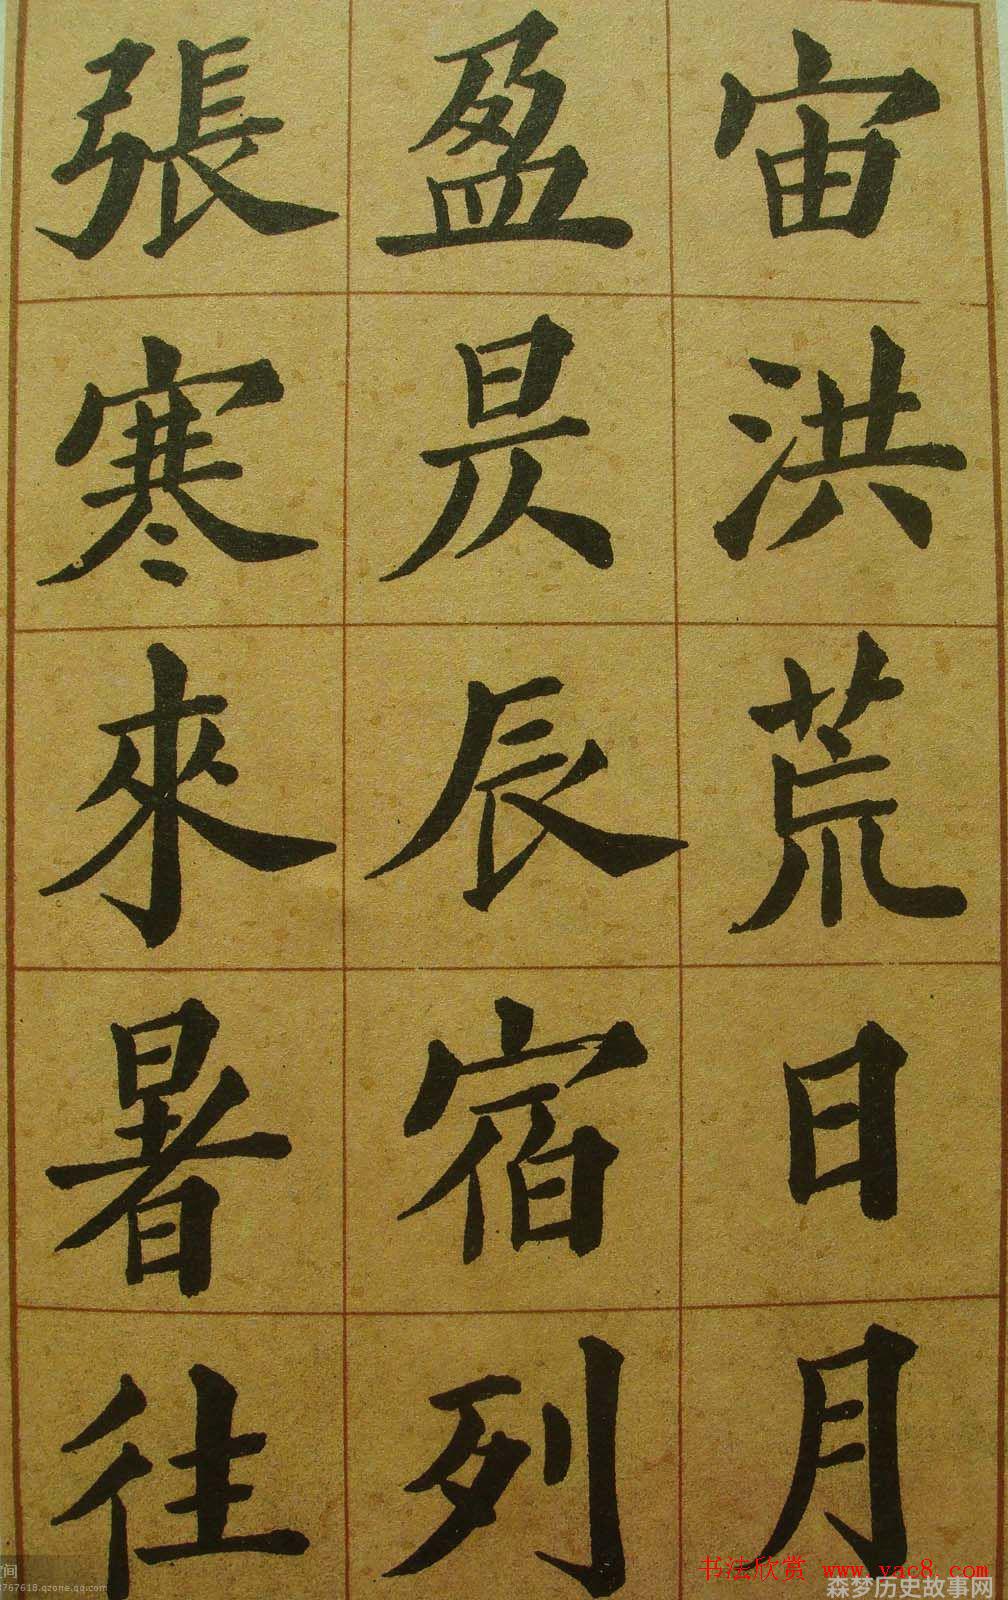 宙洪荒日月
盈昃辰宿列
張寒來暑往
书法欣赏 www.yac8.com
森梦历史故事网
间
3767618.qzone.qq.com